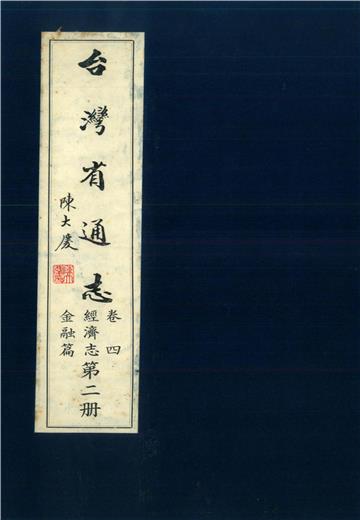 台灣省通志
陳大慶
卷四
經濟志
金融篇
第二册